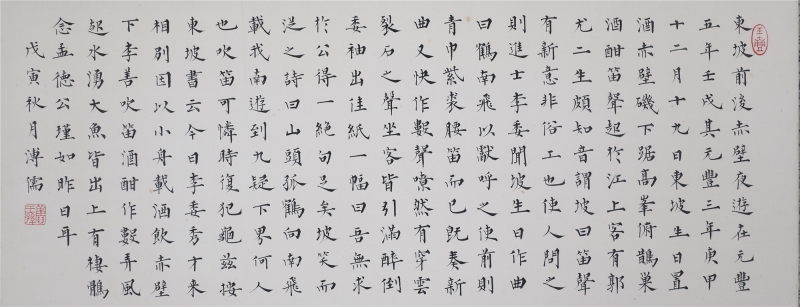 東坡前後赤壁夜遊在元豐
五年壬戌其元豐三年庚申
十二月十九日東坡生日置
酒赤壁磯下踞高峯俯鵲巢
酒酣笛聲起於江上客有郭
尤二生頗知音謂坡曰笛聲
有新意非俗工也使人問之
則進士李委聞坡生日作曲
曰鶴南飛以獻呼之使前則
青巾紫裘腰笛而已既奏新
曲又快作數聲嘹然有穿雲
裂石之聲坐客皆引滿醉倒
委袖出佳紙一幅曰吾無求
於公得一絕句足矣坡笑而
從之詩曰山頭孤鶴向南飛
載我南遊到九疑下界何人
也吹笛可憐時復犯龜茲按
東坡書云今日李委秀才來
相別因以小舟載酒飲赤壁
下李善吹笛酒酣作數弄風
起水湧大魚皆出上有棲鶻
念孟德公瑾如昨日耳
戊寅秋月溥儒